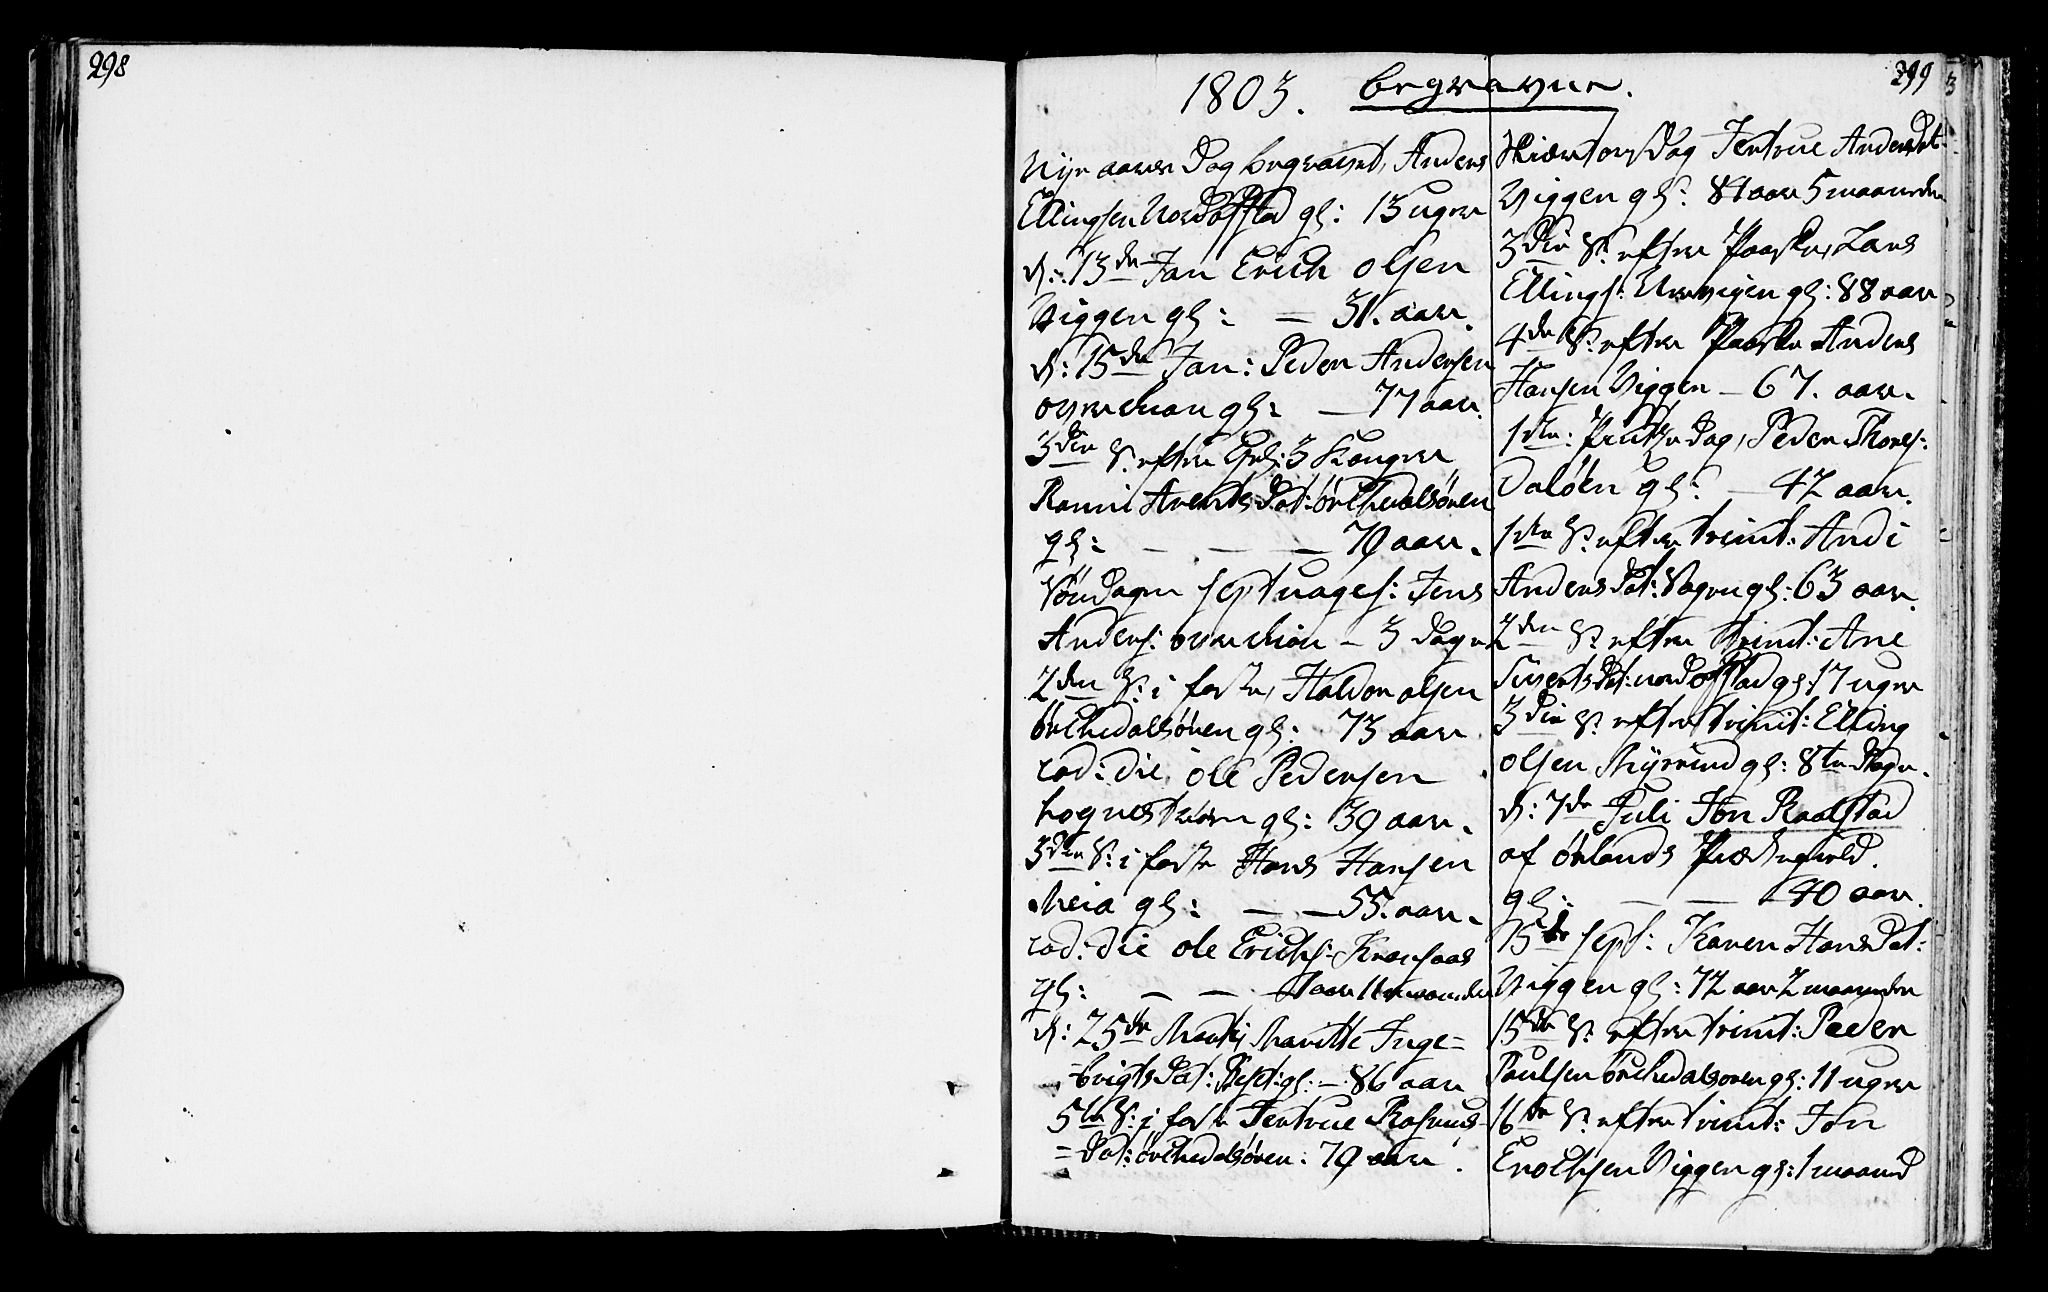 298
299
1803. begravne.
Nye aars Dag begravet, Anders
Ellingsen Nordofstad gl: 13 uger
d: 13de Jan Erich olsen
Viggen gl: — 31. aar.
d: 15de Jan: Peder Andersen
gl: — 77 aar.
3die S. efter Hel: 3 Konger
Ranni Arents Dat: Örchedalsören
gl: — — — 79 aar.
Söndagen septuages: Jens
Anders: — 3 Dage
2den S: i faste, Haldor olsen
Örchedalsören gl: 73 aar
eod: die ole Pedersen
gl: 39 aar.
3die S: i faste Hans Hansen
gl: — — 55. aar.
eod: die ole Erichs:
gl: — — 1 aar 11 maaneder
d: 25de Martij Maritte Inge=
=brigts Dat: gl: — 86 aar
5te S: i faste Jertrue Rasmus
=Dat: Örchedalsören: 79 aar.
Skiertorsdag Jertrue Anders Dat:
Viggen gl: 84 aar 5 maaneder
3die S. efter Paaske, Lars
Ellings: gl: 88 aar
4de S: efter Paaske Anders
Hansen Viggen — 67. aar.
1ste: Pintse Dag, Peder Thores:
Dalöen gl: — 42 aar.
1ste S: efter trinit: Andi
Anders Dat: gl: 63 aar.
2den S: efter trinit: Ane
Siverts Dat: nordofstad gl: 17 uger
3die S: efter trinit: Elling
olsen gl: 8te Dage.
d: 7de Juli Jon
af Örlands Præstegield.
gl: — — 40 aar.
15de sept: Karen Hans Dat:
Viggen gl: 72 aar 2 maaneder
15de S: efter trinit: Peder
Paulsen Örchedalsoren gl: 11 uger
16de S: efter trinit: Jon
Erochsen Viggen gl: 1 maaned